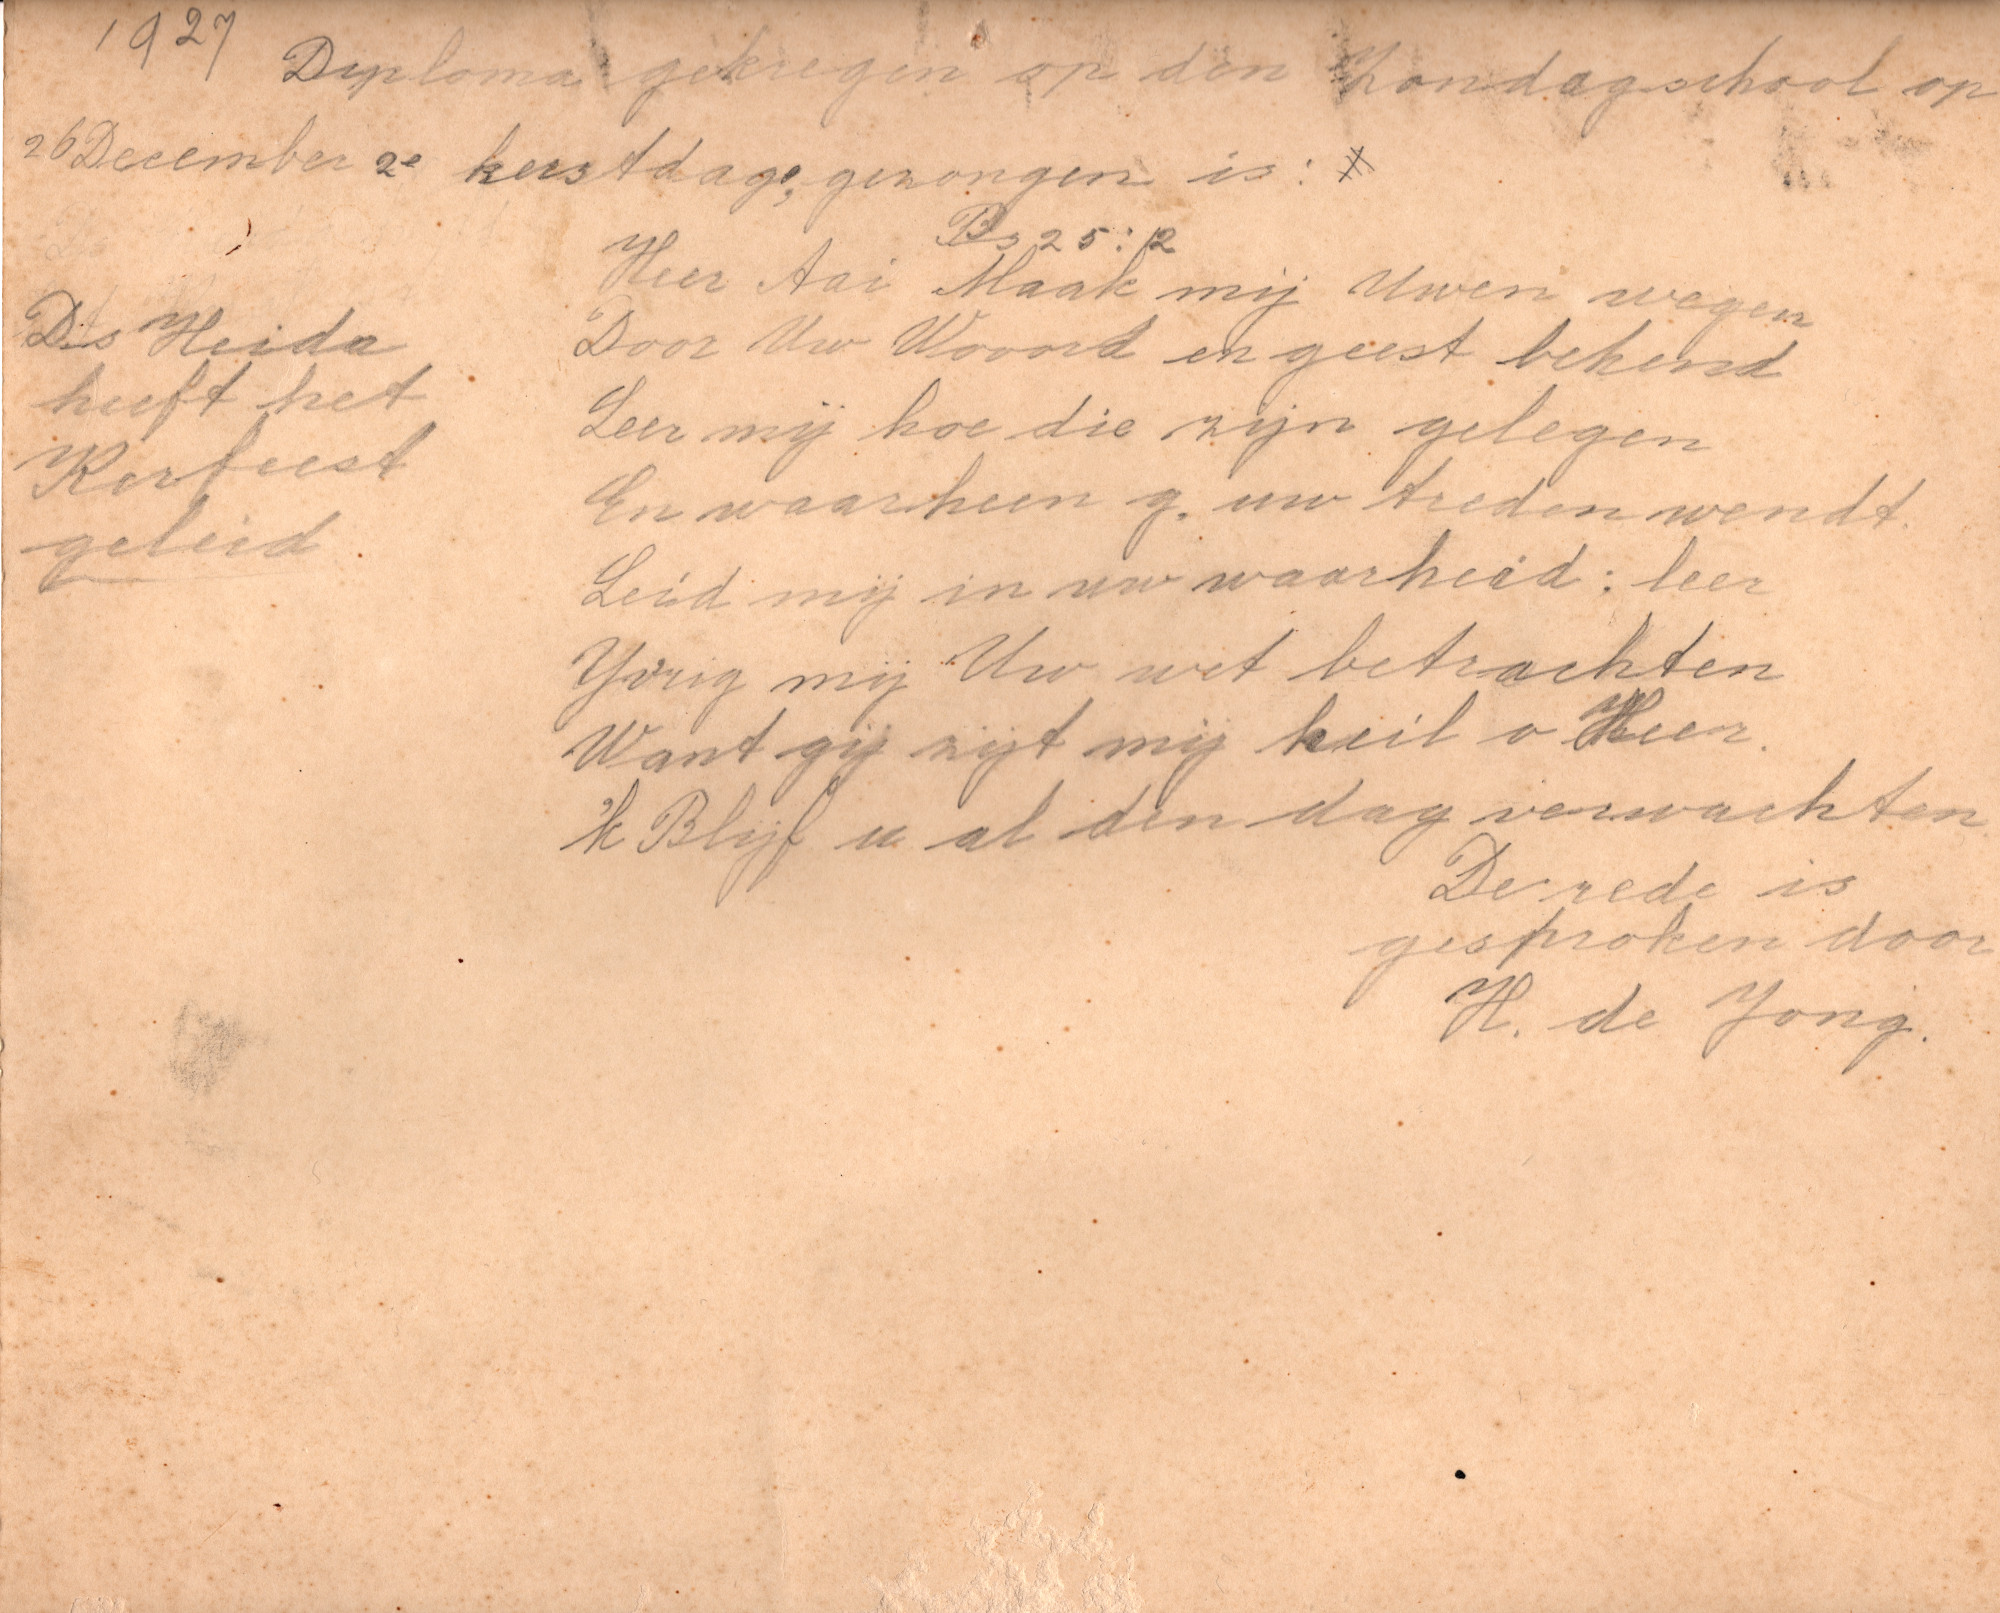 1927
Diploma gekregen op den Zondagschool op
26 December 2e kerstdag, gezongen is:
Ps 25:2
Heer Aai Maak mij Uwen wegen
Door Uw Wooord en geest bekend
Leer mij hoe die zijn gelegen
En waarheen g. uw treden wendt.
Leid mij in uw waarheid: leer
Yvrig mij Uw wet betrachten
Want gij zijt mij heil o Heer.
'k Blijf u al den dag verwachten
De rede is
gesproken door
H. de Jong.
Ds Heida
heeft het
Kerfeest
geleid